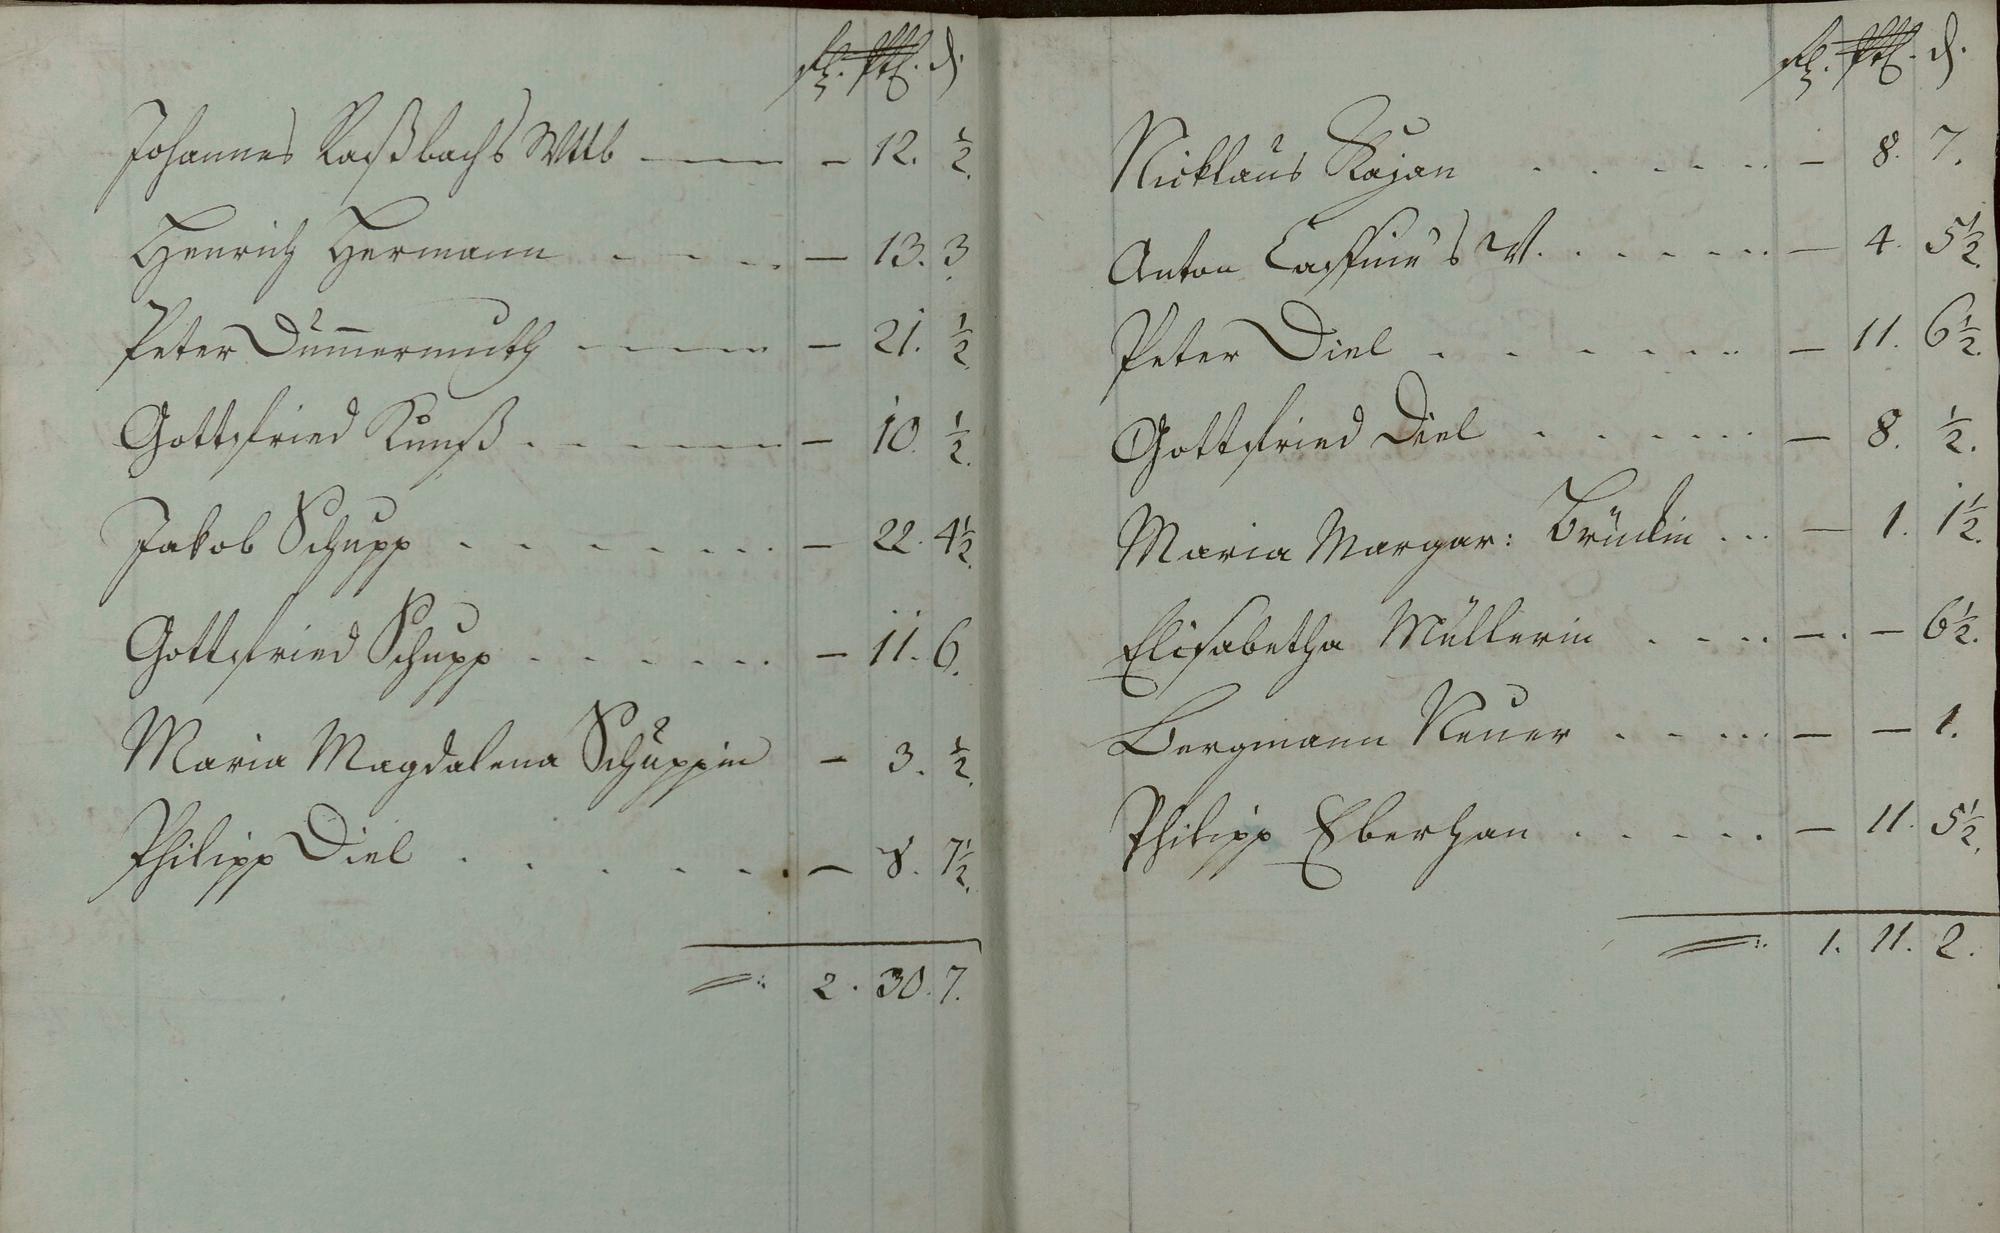 Johannes Raßbachs Wttb — 12. ½.
Henrich Hermann — 13. 3.
Peter Dum̄ermuth — 21. ½.
Gottfried Kunß — 10. ½.
Jakob Schupp — 22. 4½.
Gottfried Schupp — 11. 6.
Maria Magdalena Schuppin — 3. ½.
Philipp Diel — 8. 7½.
2. 30. 7.
Nicklaus Kajan — 8. 7.
Anton — 4. 5½.
Peter Diel — 11. 6½.
Gottfried Diel — 8. ½.
Maria Margar: Brückin — 1. 1½.
Elisabetha Müllerin — — 6½.
Bergmann Neuer — — 1.
Philipp Eberhan — 11. 5½.
1. 11. 2.